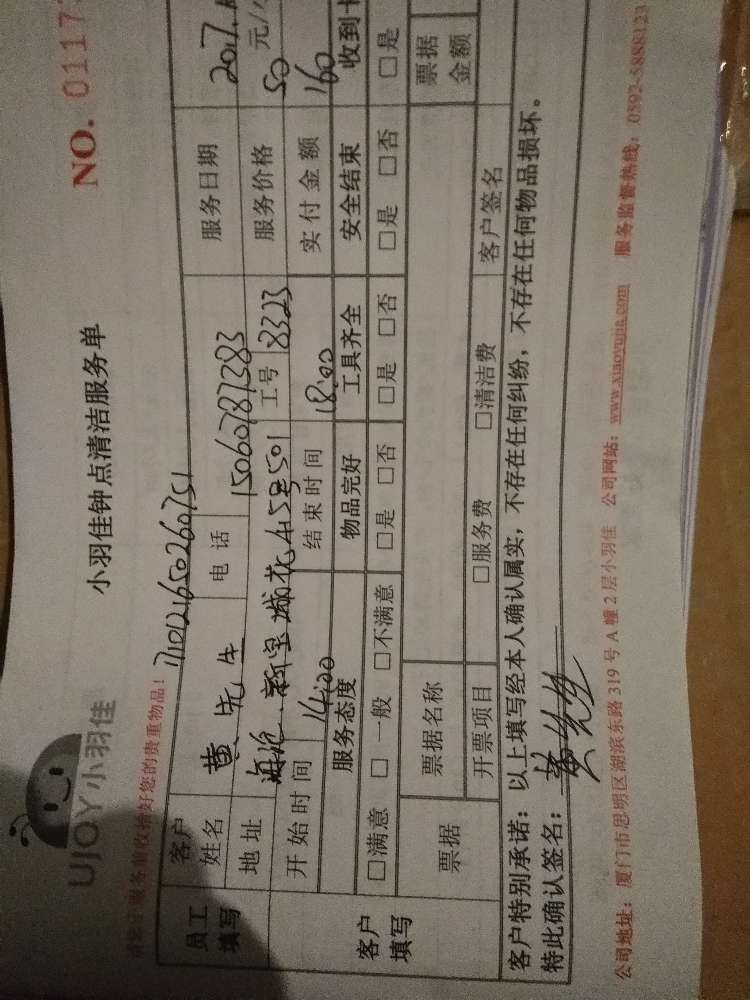 UJOY小羽佳
小羽佳钟点清洁服务单
NO. 0117
服务前收拾好您的贵重物品!
1710121650260751
员工填写
客户姓名 黄先生 电话 15060787383 服务日期 2017.
地址 海沧.新宝城花 501 工号 8323 服务价格 50 元/
开始时间 14:00 结束时间 18:00 实付金额 160
客户填写
服务态度 物品完好 工具齐全 安全结束 收到卡
□满意 □一般 □不满意 □是 □否 □是 □否 □是 □否 □是
票据 票据名称 票据金额
开票项目 □服务费 □清洁费 客户签名
客户特别承诺:以上填写经本人确认属实,不存在任何纠纷,不存在任何物品损坏。
特此确认签名:黄先生
公司地址:厦门市思明区湖滨东路319号A幢2层小羽佳 公司网站:www.xiaoyujia.com 服务监督热线:0592-5888123